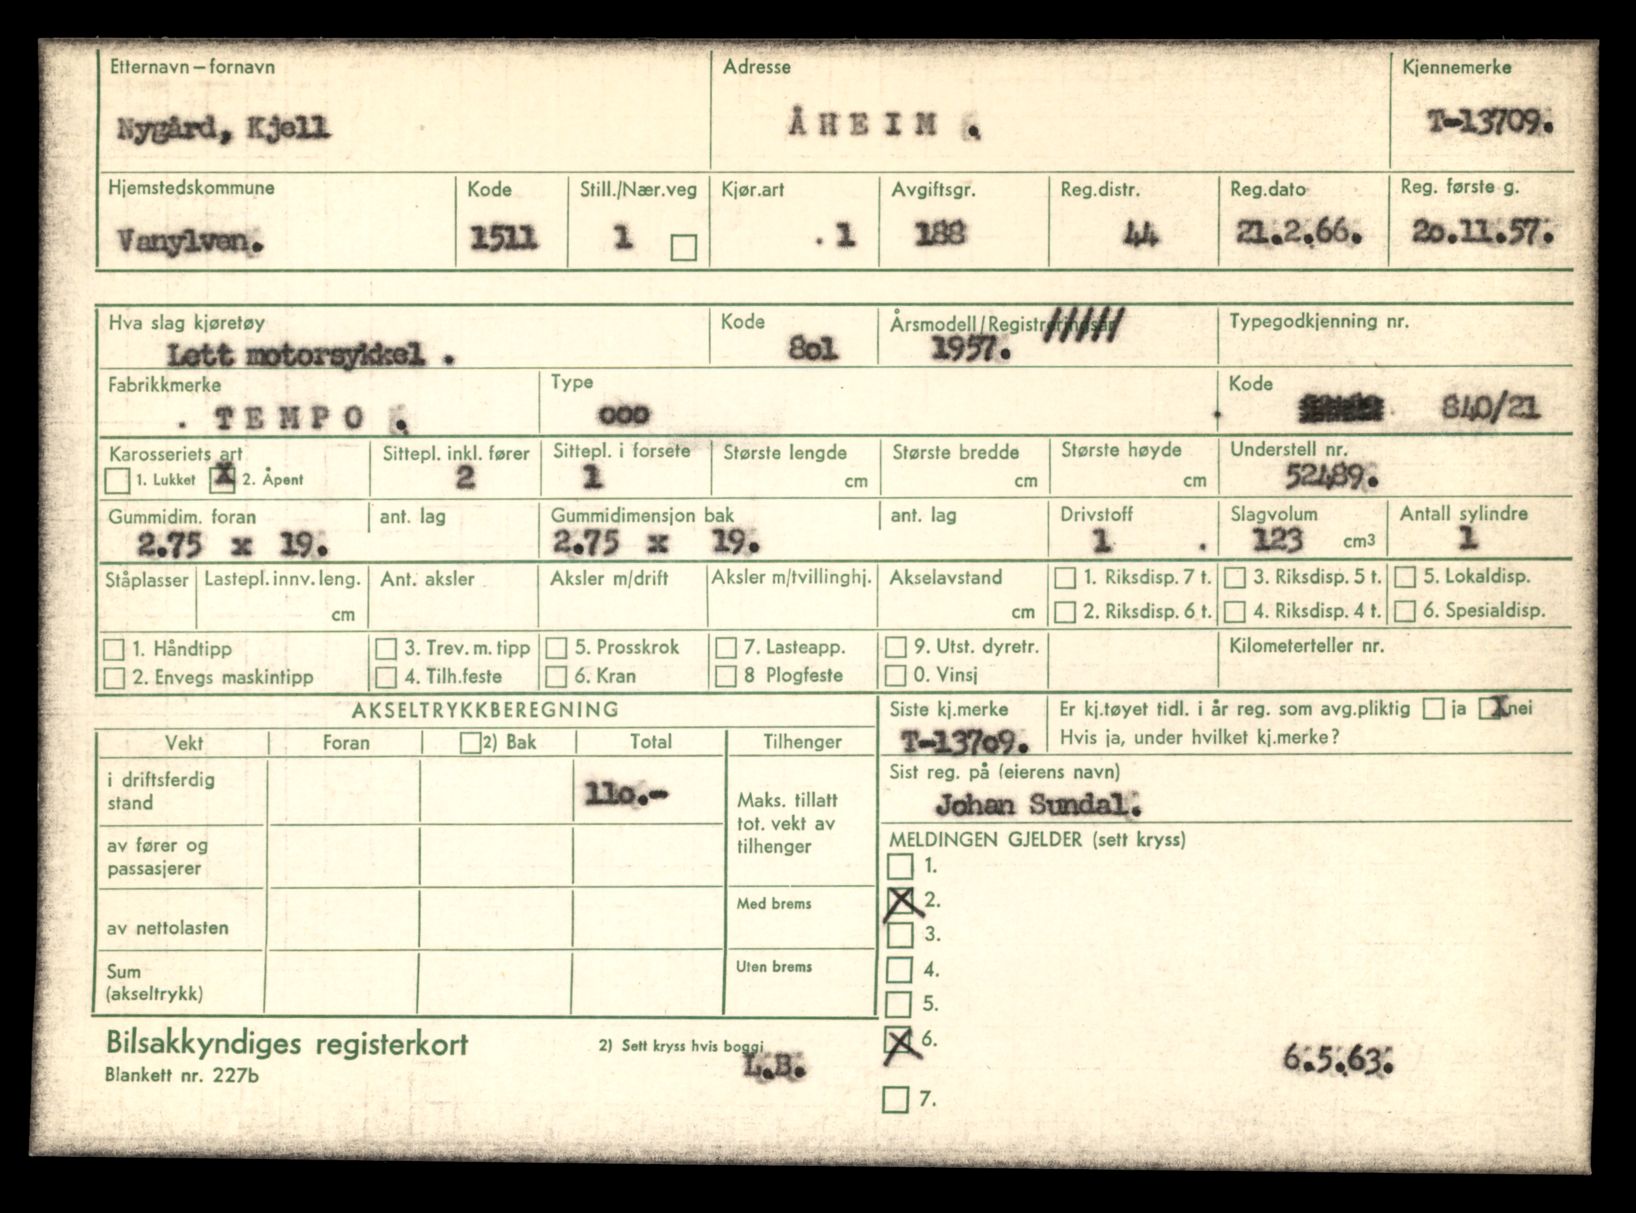 Etternavn – fornavn Adresse Kjennemerke
Nygård, Kjell ÅHEIM. T-13709.
Hjemstedskommune Kode Still./Nær.veg Kjør.art Avgiftsgr. Reg.distr. Reg.dato Reg. første g.
Vanylven. 1511 1 . 1 188 44 21.2.66. 2o.11.57.
Hva slag kjøretøy Kode Årsmodell/Registreringsår Typegodkjenning nr.
Lett motorsykkel . 8o1 1957.
Fabrikkmerke Type Kode
. TEMPO . ooo 840/21
Karosseriets art Sittepl. inkl. fører Sittepl. i forsete Største lengde Største bredde Største høyde Understell nr.
1. Lukket X 2. Åpent 2 1 cm cm cm 52489.
Gummidim. foran ant. lag Gummidimensjon bak ant. lag Drivstoff Slagvolum Antall sylindre
2.75 x 19. 2.75 x 19. 1 . 123 cm3 1
Ståplasser Lastepl. innv. leng. Ant. aksler Aksler m/drift Aksler m/tvillinghj. Akselavstand 1. Riksdisp. 7 t. 3. Riksdisp. 5 t. 5. Lokaldisp.
cm cm 2. Riksdisp. 6 t. 4. Riksdisp. 4 t. 6. Spesialdisp.
1. Håndtipp 3. Trev. m. tipp 5. Prosskrok 7. Lasteapp. 9. Utst. dyretr. Kilometerteller nr.
2. Envegs maskintipp 4. Tilh.feste 6. Kran 8 Plogfeste 0. Vinsj
AKSELTRYKKBEREGNING Siste kj.merke Er kj.tøyet tidl. i år reg. som avg.pliktig ja X nei
Vekt Foran 2) Bak Total Tilhenger T-137o9. Hvis ja, under hvilket kj.merke?
i driftsferdig stand 11o.- Maks. tillatt tot. vekt av tilhenger
Sist reg. på (eierens navn)
Johan Sundal.
av fører og passasjerer
MELDINGEN GJELDER (sett kryss)
1.
Med brems X 2.
av nettolasten 3.
Sum (akseltrykk) Uten brems 4.
5.
Bilsakkyndiges registerkort 2) Sett kryss hvis boggi X 6.
L.B. 6.5.63.
Blankett nr. 227b
7.